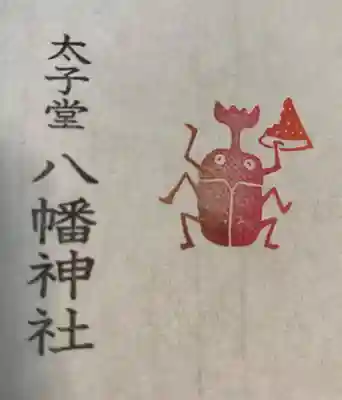 太子堂
八幡神社